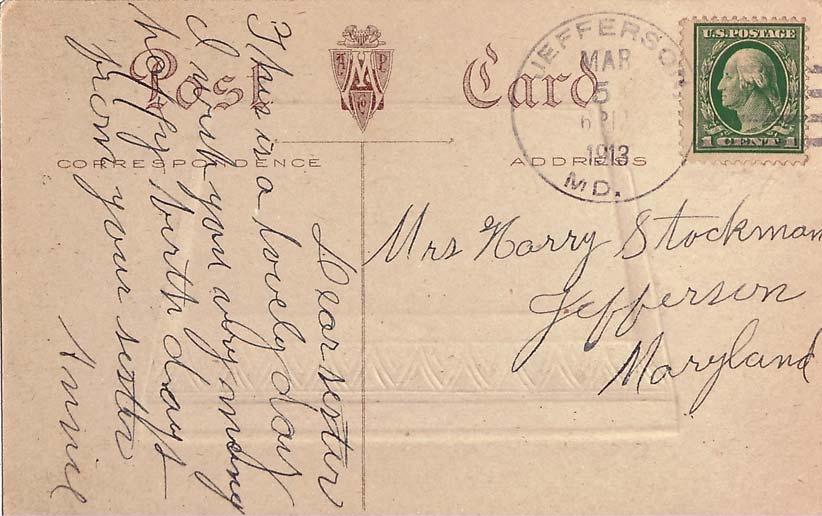 Post Card
CORRESPONDENCE
ADDRESS
JEFFERSON
MAR
5
1913
MD.
U.S. POSTAGE
1 CENT 1
Mrs Harry Stockman
Jefferson
Maryland
Dear sister
This is a lovely day
I wish you very many
happy birth days
from your sister
Annie